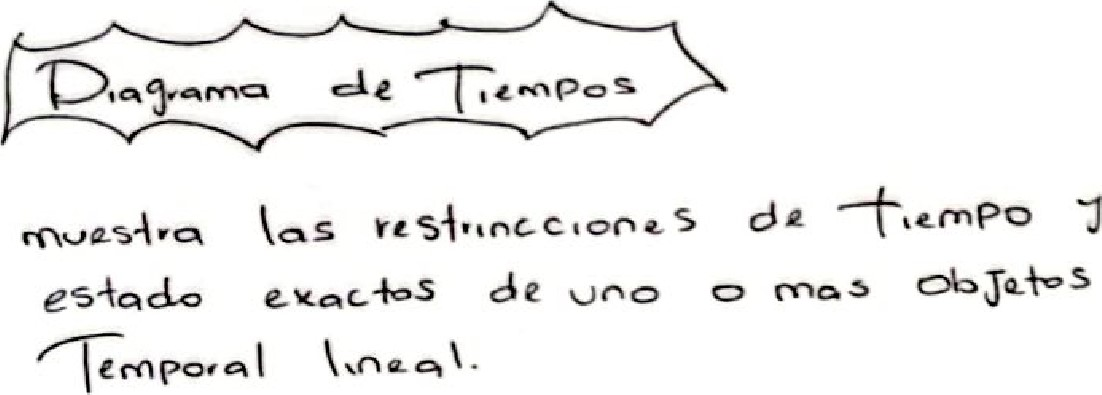 Diagrama de Tiempos
muestra las restrincciones de tiempo y
estado exactos de uno o mas objetos
Temporal lineal.